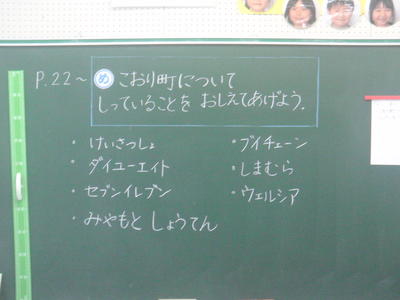 P.22～ め こおり町について
しっていることを おしえてあげよう.
・けいさつしょ
・ダイユーエイト
・セブンイレブン
・みやもと しょうてん
・ブイチェーン
・しまむら
・ウェルシア